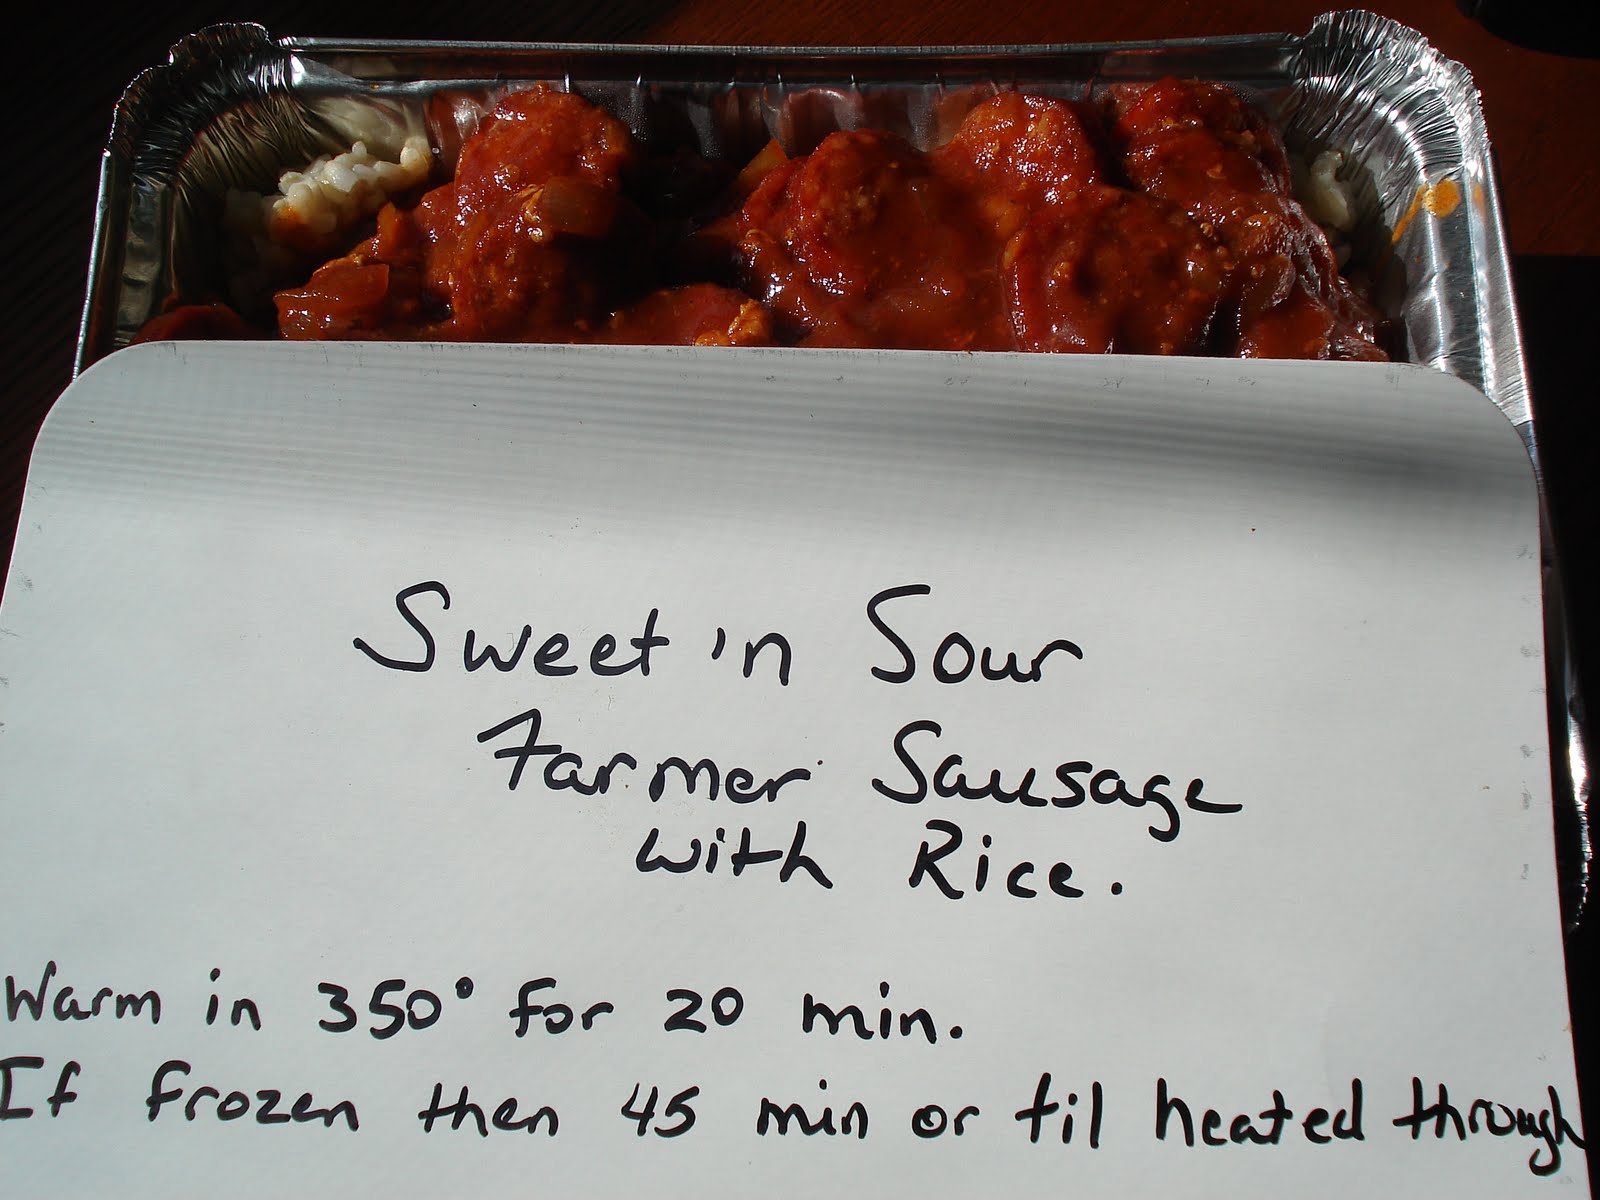 Sweet 'n Sour
Farmer Sausage
with Rice.
Warm in 350° for 20 min.
If frozen then 45 min or til heated through